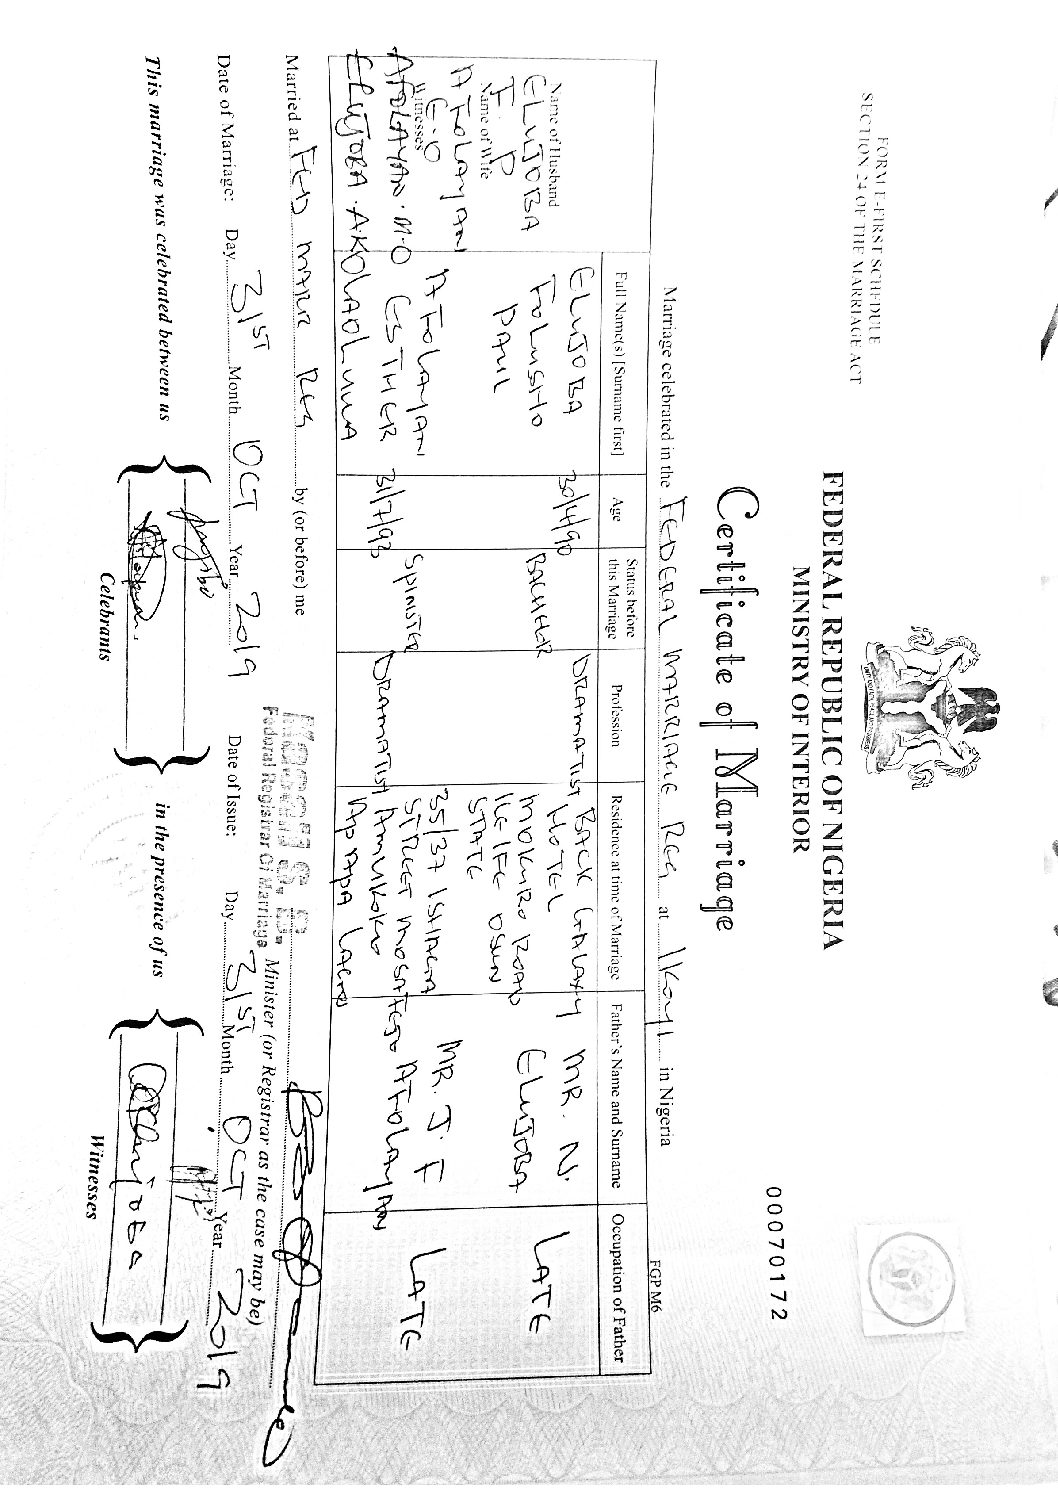 FORM E-FIRST SCHEDULE
SECTION 24 OF THE MARRIAGE ACT
FEDERAL REPUBLIC OF NIGERIA
MINISTRY OF INTERIOR
00070172
Certificate of Marriage
Marriage celebrated in the FEDERAL MARRIAGE REG at IKOYI in Nigeria
FGP M6
Full Name(s) [Surname first]
Age
Status before
this Marriage
Profession
Residence at time of Marriage
Father's Name and Surname
Occupation of Father
Name of Husband
ELUJOBA
F. P
ELUJOBA
FOLUSHO
PAUL
30/4/90
BACHELOR
DRAMATIST
BACK GALAXY
HOTEL
MOKURO ROAD
ILE IFE OSUN
STATE
MR. N.
ELUJOBA
LATE
Name of Wife
AFOLAYAN
E. O
AFOLAYAN
ESTHER
31/7/93
SPINSTER
DRAMATIST
35/37 ISHAGA
STREET MOSAFEJO
AMUKOKO
APAPA LAGOS
MR. J. F
AFOLAYAN
LATE
Witnesses
AFOLAYAN. M.O
ELUJOBA. AKOLAOLUWA
Married at FED MARR REG by (or before) me
Federal Registrar Of Marriage
Minister (or Registrar as the case may be)
Date of Marriage: Day 31ST Month OCT Year 2019 Date of Issue: Day 31ST Month OCT Year 2019
This marriage was celebrated between us
Celebrants
in the presence of us
Witnesses